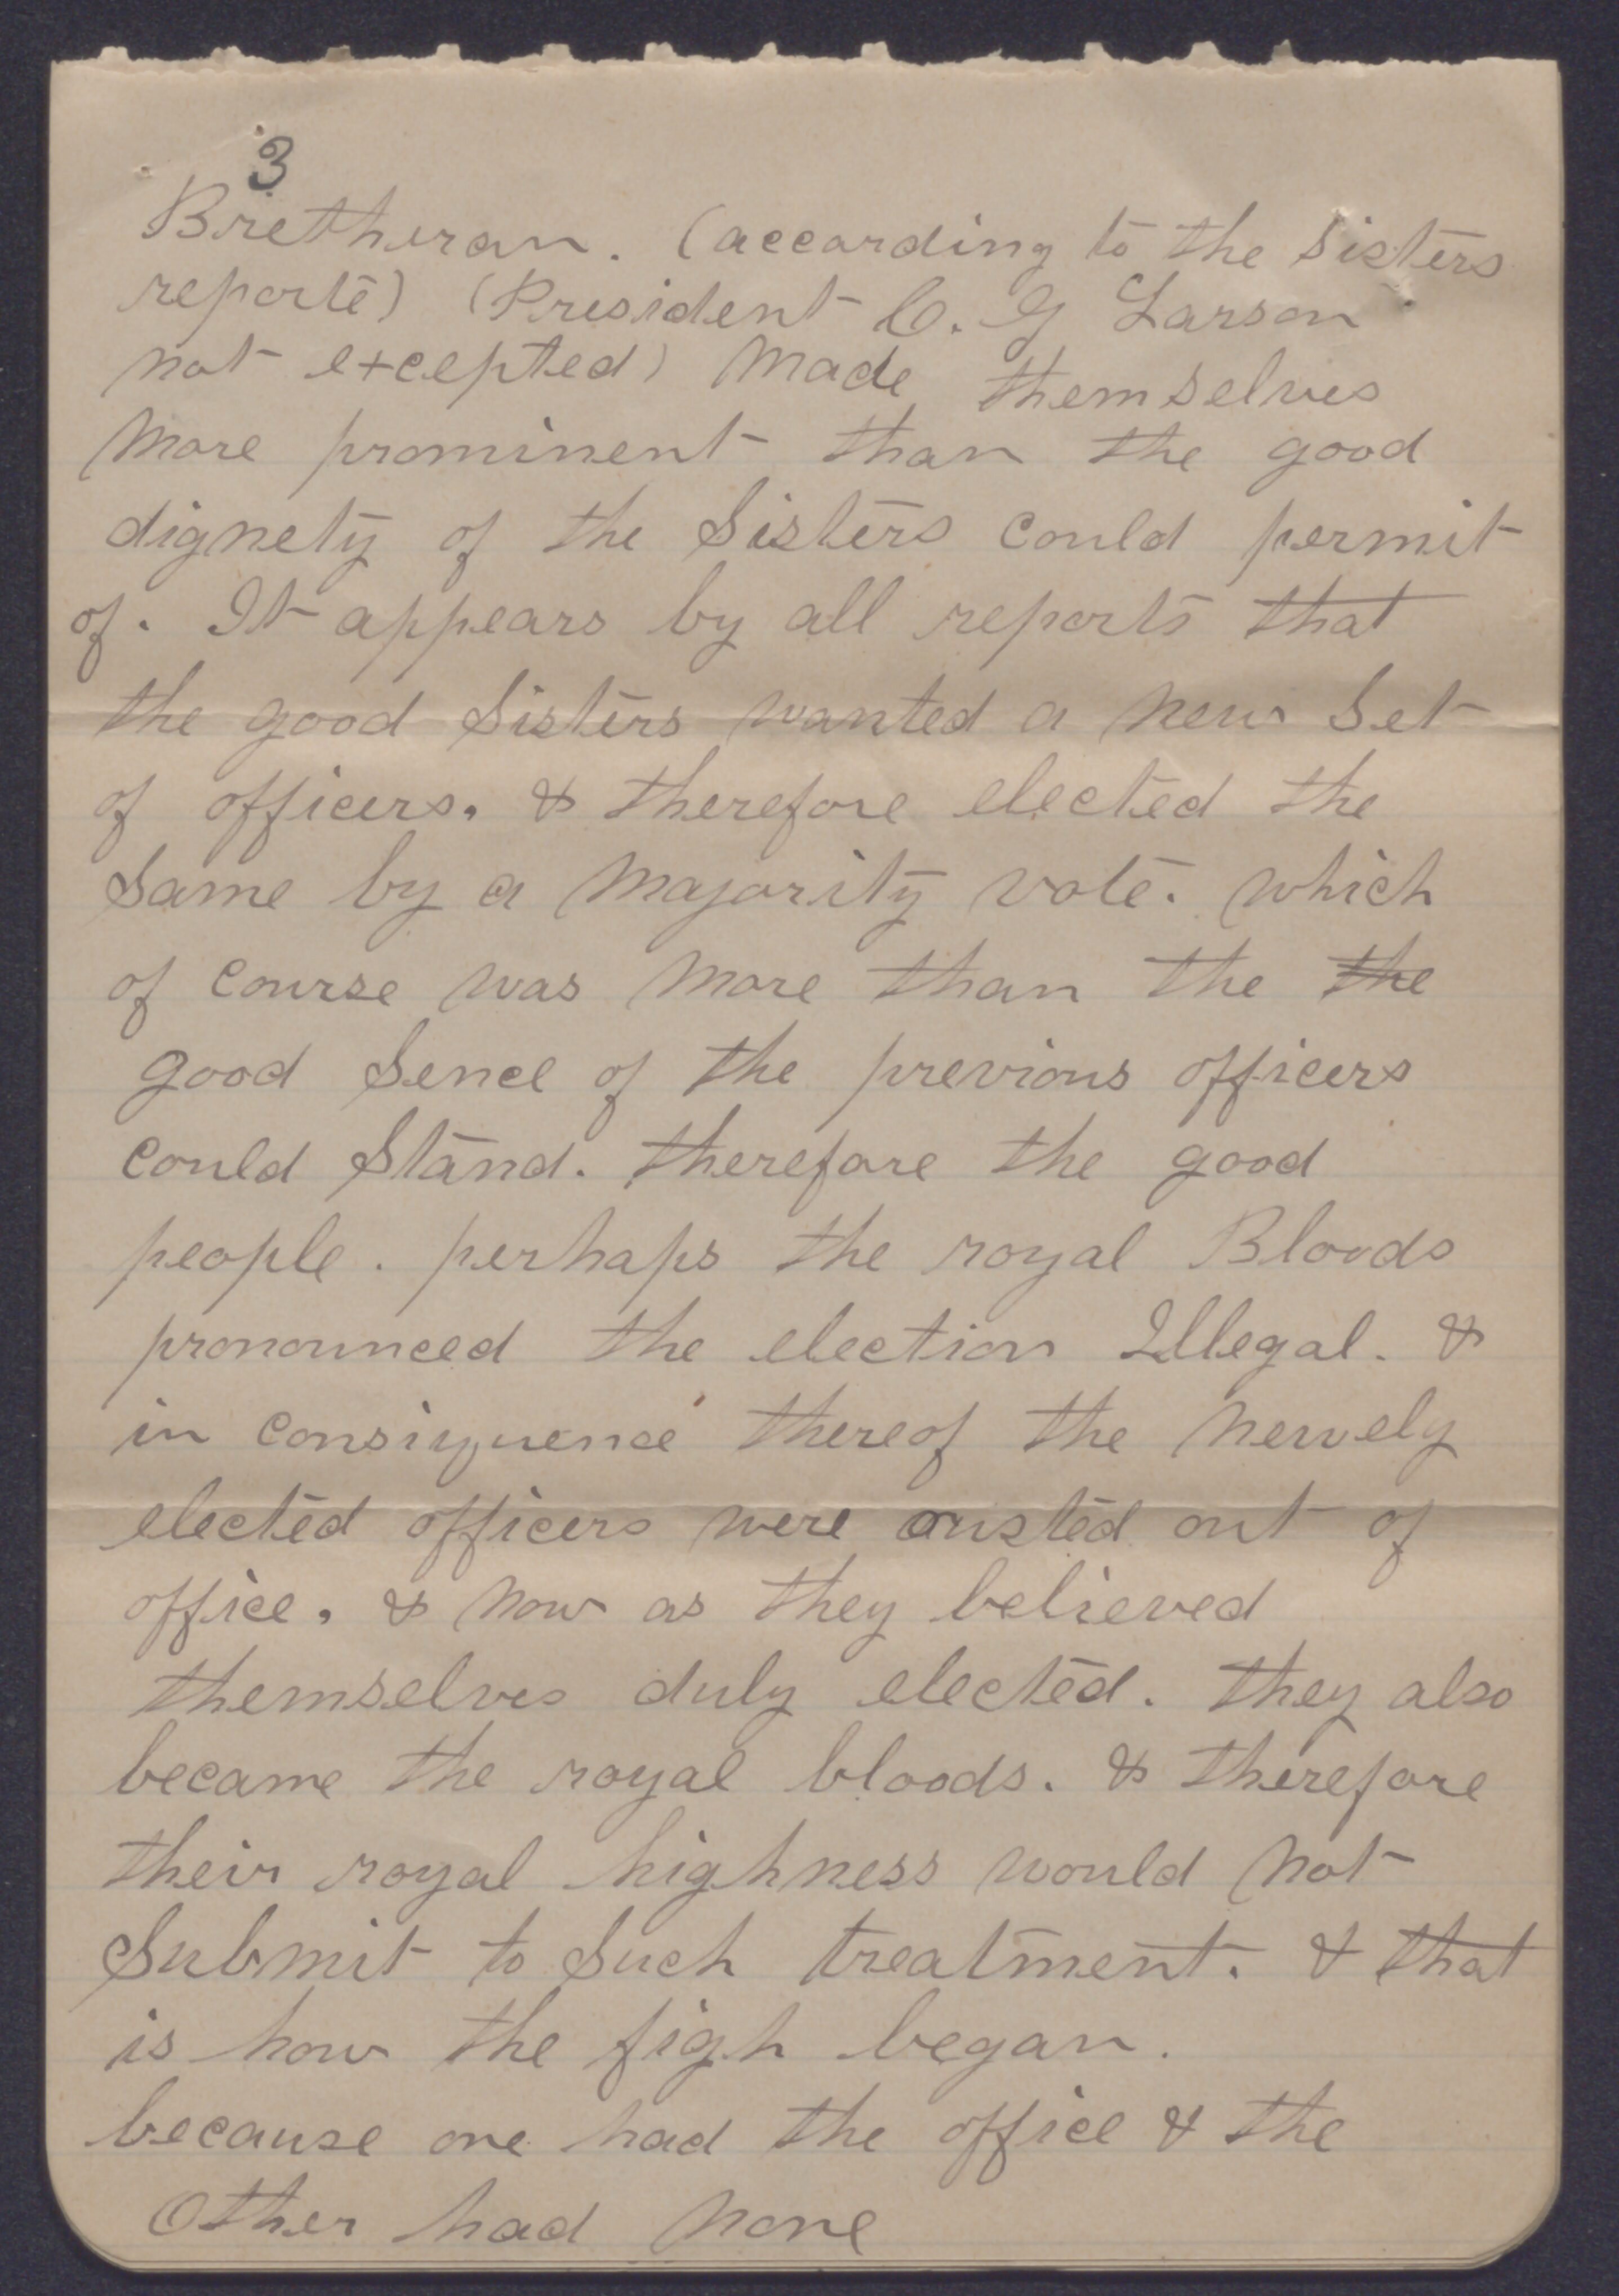 3
Bretheran. (according to the Sisters
reporte) (President C. G Larson
not excepted) Made themselves
More prominent than the good
dignety of the Sisters could permit
of. It appears by all reports that
the good Sisters wanted a New Set
of officers. & therefore elected the
Same by a Majority vote. which
of course was More than the the
good Sence of the previous officers
could Stand. therefore the good
people. perhaps the royal Bloods
pronounced the election Illegal. &
in consiquence thereof the Newely
elected officers were ousted out of
office. & Now as they believed
themselves duly elected. they also
became the royal bloods. & therefore
their royal highness would Not
Submit to Such treatment. & that
is how the figh began.
because one had the office & the
Other had None